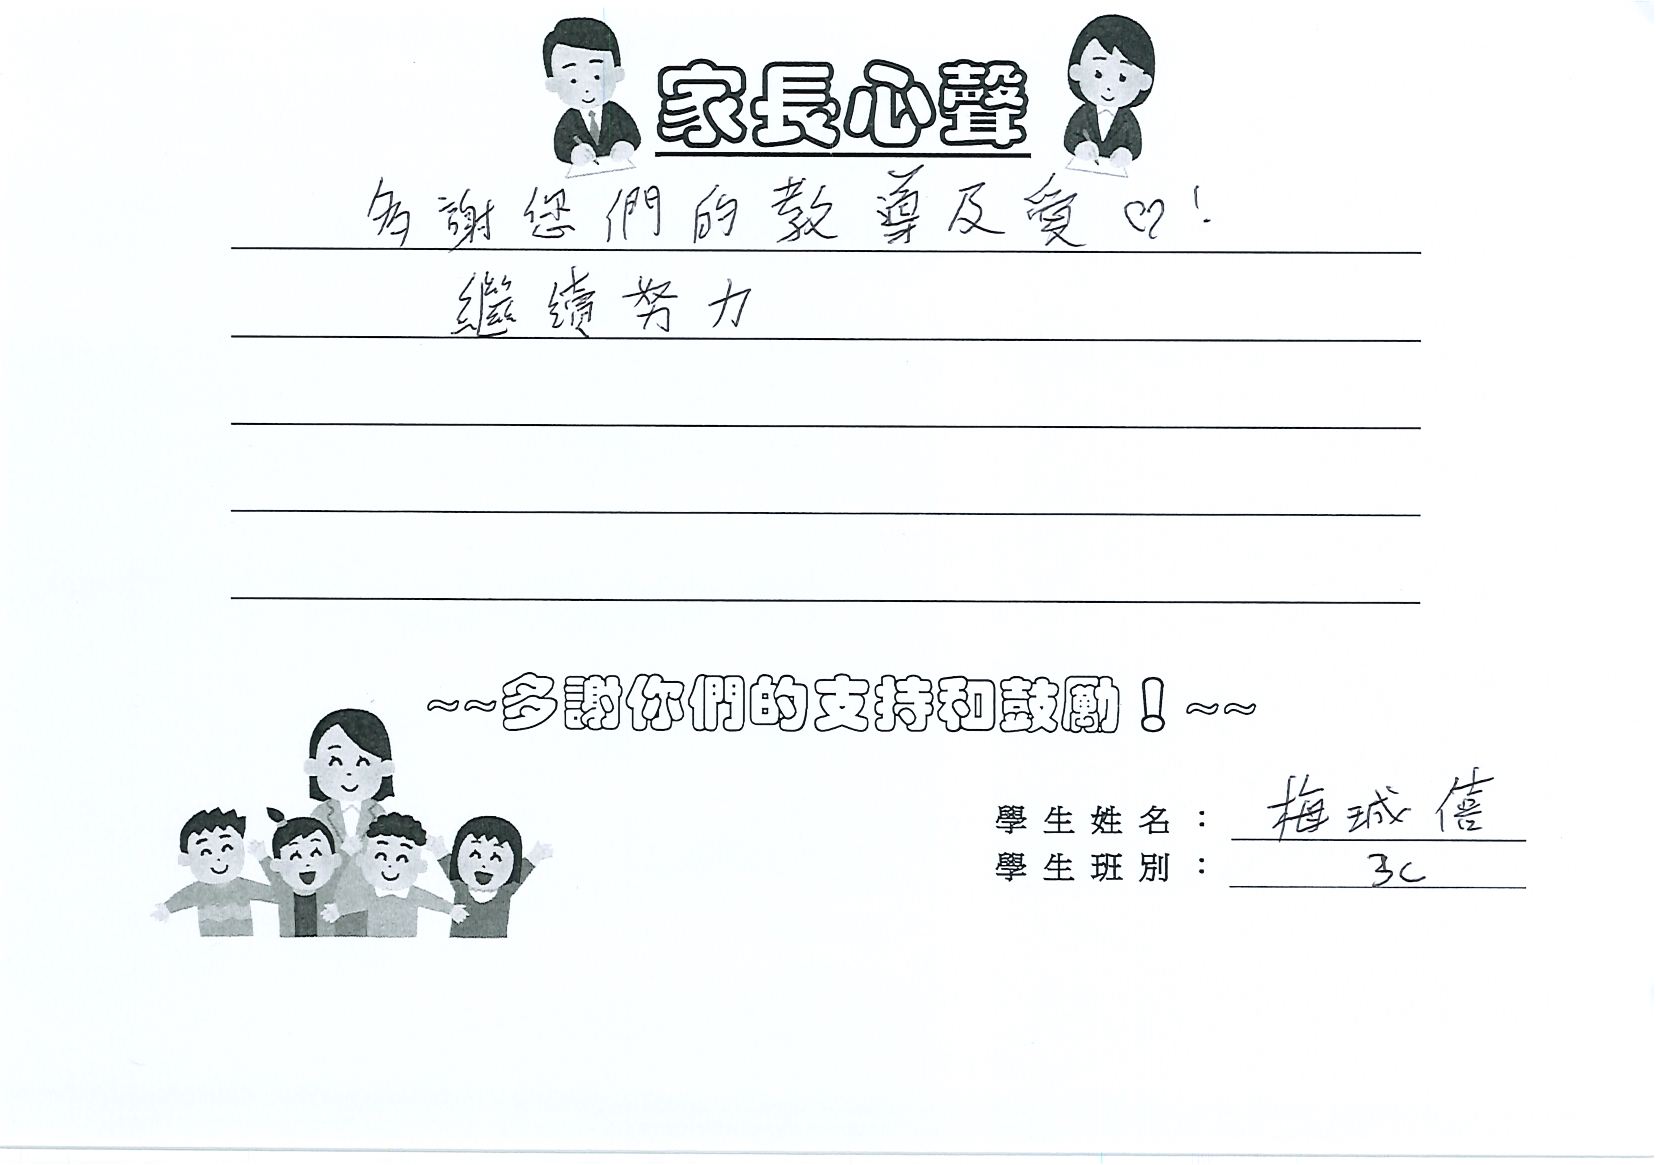 家長心聲
多謝您們的教導及愛♡!
繼續努力
~~多謝你們的支持和鼓勵！~~
學生姓名： 梅珹僖
學生班別： 3C